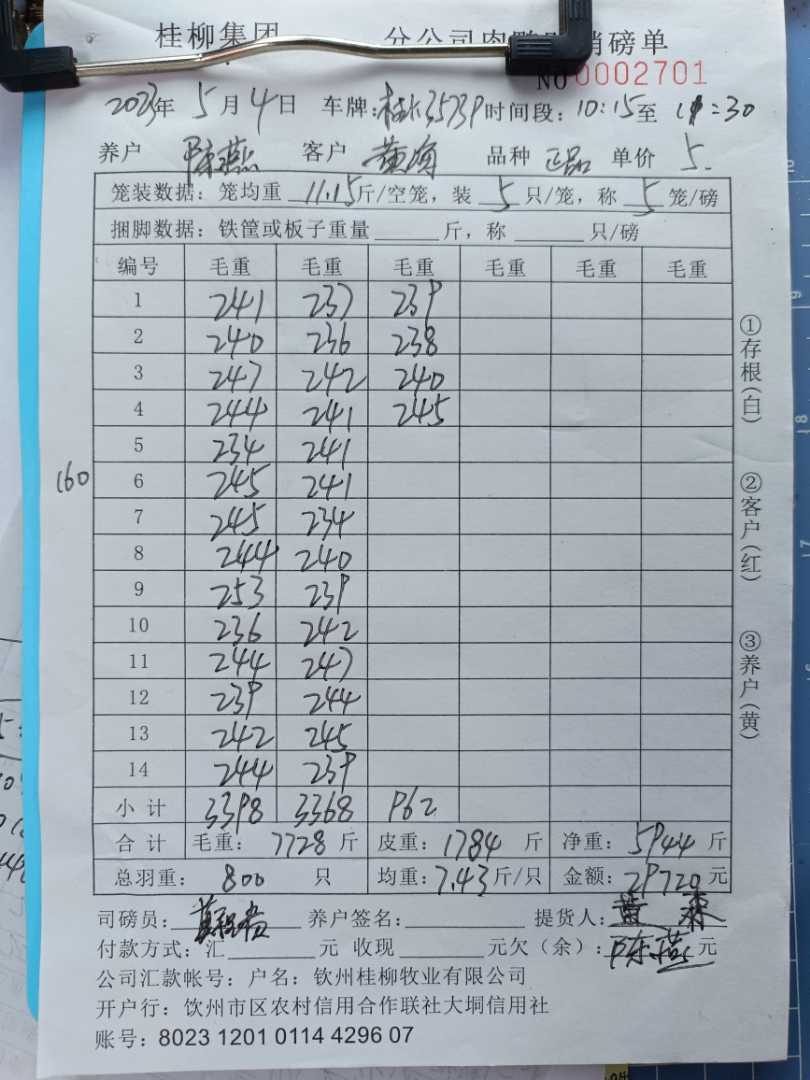 桂柳集团 分公司肉鸭 销磅单
NO 0002701
2023年 5月4日 车牌: 3573P 时间段: 10:15至 11:30
养户 陈燕 客户 黄 品种 正品 单价 5.
笼装数据: 笼均重 11.15斤/空笼, 装 5 只/笼, 称 5 笼/磅
捆脚数据: 铁筐或板子重量 斤, 称 只/磅
编号 毛重 毛重 毛重 毛重 毛重 毛重
1 241 237 239
2 240 236 238
3 247 242 240
4 244 241 245
5 234 241
160 6 245 241
7 245 234
8 244 240
9 253 239
10 236 242
11 244 247
12 239 244
13 242 245
14 244 239
小计 3398 3368 962
合计 毛重: 7728 斤 皮重: 1784 斤 净重: 5944 斤
总羽重: 800 只 均重: 7.43斤/只 金额: 29720元
司磅员: 养户签名: 提货人: 黄森
付款方式: 汇 元 收现 元欠(余): 陈燕 元
公司汇款帐号: 户名: 钦州桂柳牧业有限公司
开户行: 钦州市区农村信用合作联社大垌信用社
账号: 8023 1201 0114 4296 07
①存根(白)
②客户(红)
③养户(黄)